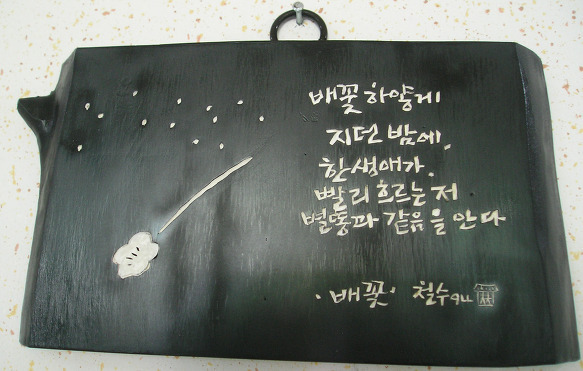 배꽃 하얗게
지던 밤에,
한 생애가.
빨리 흐르는 저
별똥과 같음을 안다
·배꽃· 철수 94